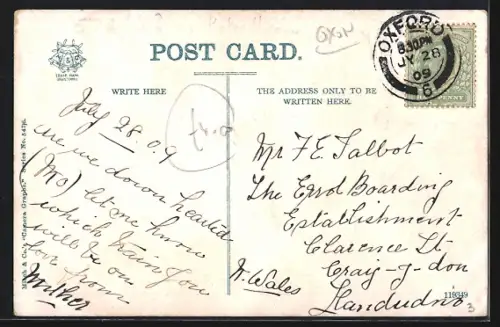 POST CARD.
WRITE HERE
THE ADDRESS ONLY TO BE
WRITTEN HERE.
OXFORD
8.30PM
JY 28
09
OXON
July 28.09
are we down hearted
(No) let me know
which train you
will be on
love from
Mother
Mr F E Talbot
The Errol Boarding
Establishment
Clarence St
Craig-y-don
N. Wales
Llandudno
119349
3